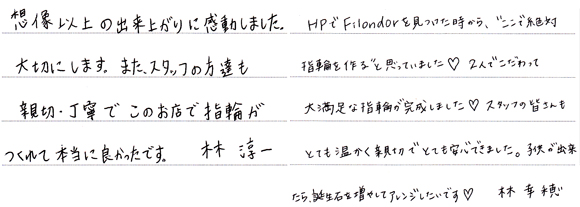 想像以上の出来上がりに感動しました。
大切にします。また、スタッフの方達も
親切・丁寧で このお店で指輪が
つくれて本当に良かったです。 林 淳一
HPでFilondorを見つけた時から、"ここで絶対
指輪を作る"と思っていました♡ 2人でこだわって
大満足な指輪が完成しました♡ スタッフの皆さんも
とても温かく親切でとても安心できました。子供が出来
たら、誕生石を増やしてアレンジしたいです♡ 林 幸穂